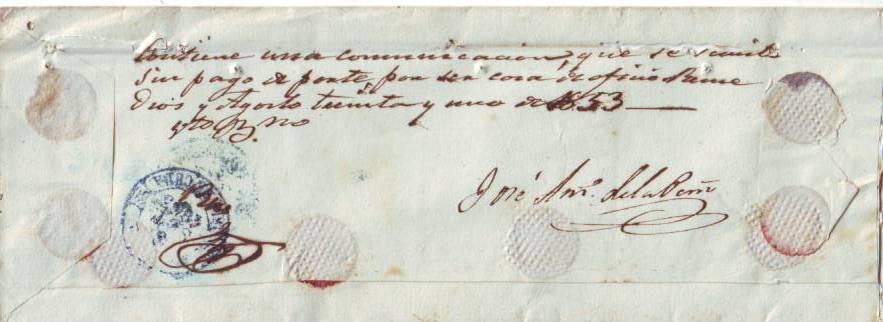 Contiene una comunicacion, que se remite
sin pago de porte, por ser cosa de oficio Reme
dios y Agosto treinta y uno de 1853
Vto Bno
José Anto. de la Peña